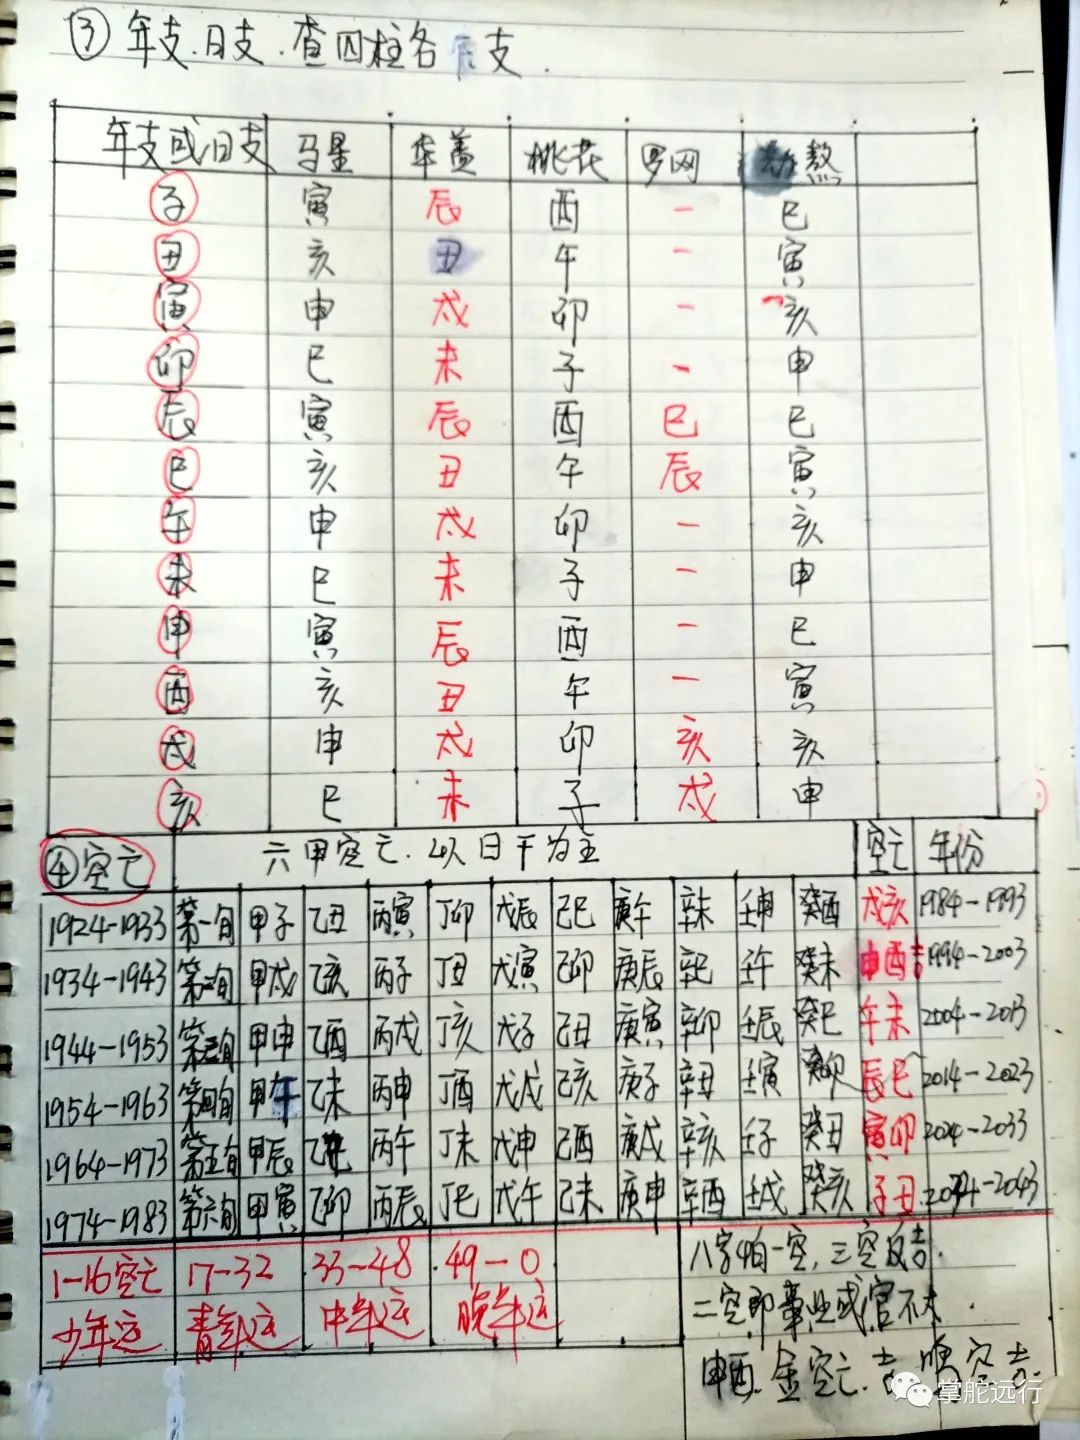 ③年支.日支.查四柱各支.
年支或日支 马星 华盖 桃花 罗网 劫煞
子 寅 辰 酉 一 巳
丑 亥 丑 午 一 寅
寅 申 戌 卯 一 亥
卯 巳 未 子 一 申
辰 寅 辰 酉 巳 巳
巳 亥 丑 午 辰 寅
午 申 戌 卯 一 亥
未 巳 未 子 一 申
申 寅 辰 酉 一 巳
酉 亥 丑 午 一 寅
戌 申 戌 卯 亥 亥
亥 巳 未 子 戌 申
④空亡 六甲空亡.以日干为主 空亡 年份
1924-1933 第一旬 甲子 乙丑 丙寅 丁卯 戊辰 己巳 庚午 辛未 壬申 癸酉 戌亥 1984-1993
1934-1943 第二旬 甲戌 乙亥 丙子 丁丑 戊寅 己卯 庚辰 辛巳 壬午 癸未 申酉吉 1994-2003
1944-1953 第三旬 甲申 乙酉 丙戌 丁亥 戊子 己丑 庚寅 辛卯 壬辰 癸巳 午未 2004-2013
1954-1963 第四旬 甲午 乙未 丙申 丁酉 戊戌 己亥 庚子 辛丑 壬寅 癸卯 辰巳 2014-2023
1964-1973 第五旬 甲辰 乙巳 丙午 丁未 戊申 己酉 庚戌 辛亥 壬子 癸丑 寅卯 2024-2033
1974-1983 第六旬 甲寅 乙卯 丙辰 丁巳 戊午 己未 庚申 辛酉 壬戌 癸亥 子丑 2034-2043
1-16空亡 17-32 33-48 49-0
少年运 青年运 中年运 晚年运
八字怕一空,三空反吉.
二空即事业或官不大.
申酉.金空亡.吉 空吉.
掌舵远行